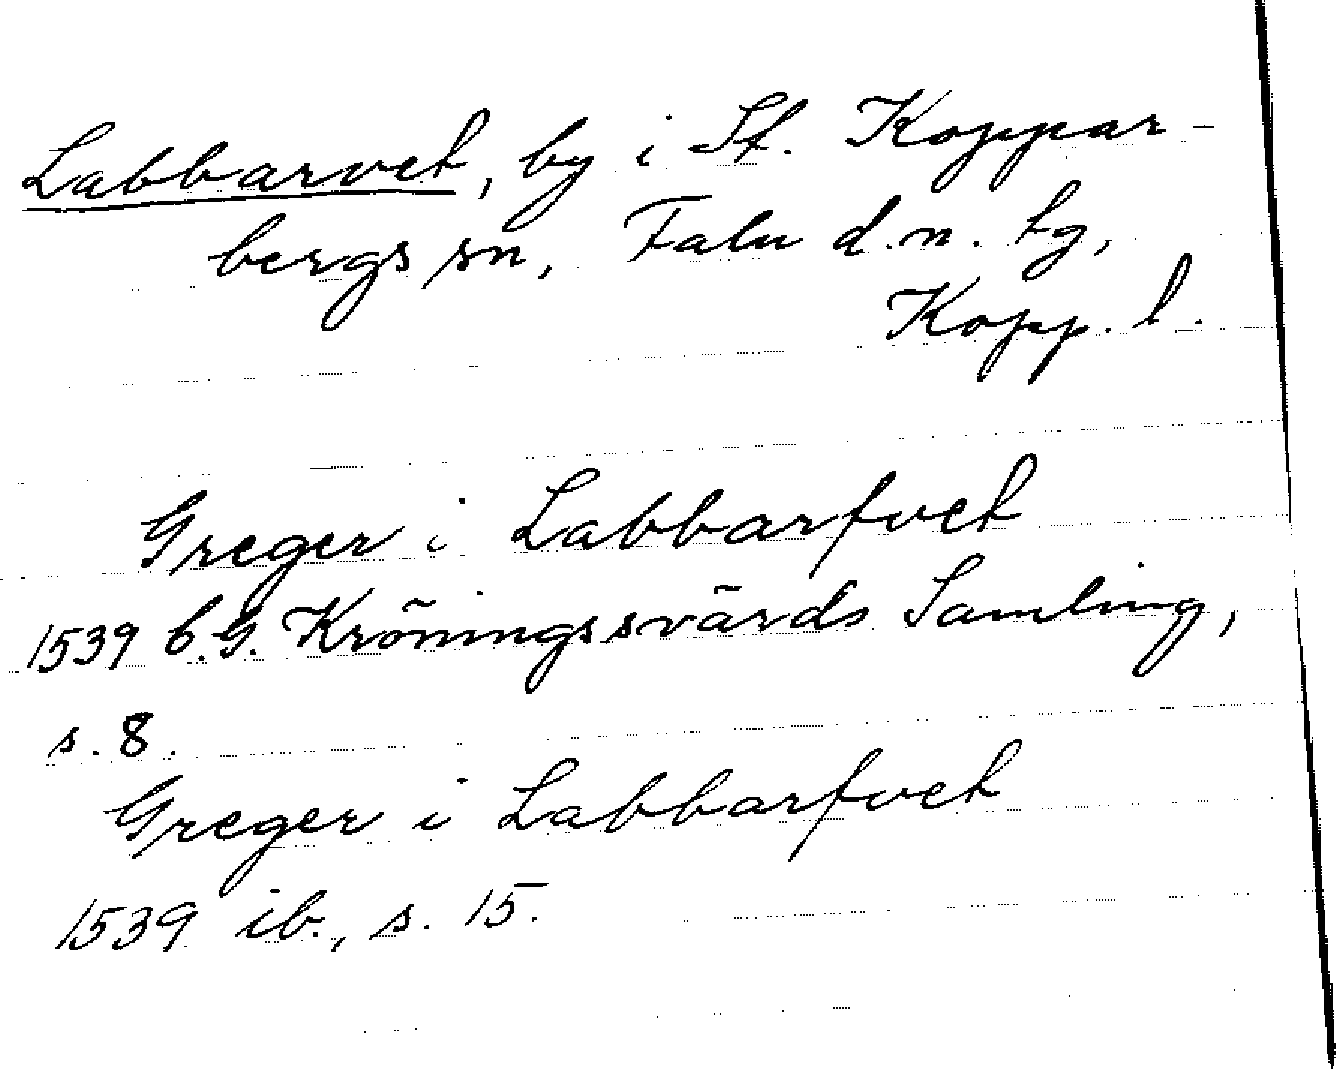 Labbarvet, by i St. Koppar-
bergs sn, Falu d.n. tg,
Kopp. l.
Greger i Labbarfvet
1539 C.G. Kröningssvärds Samling,
s. 8.
Greger i Labbarfvet
1539 ib., s. 15.